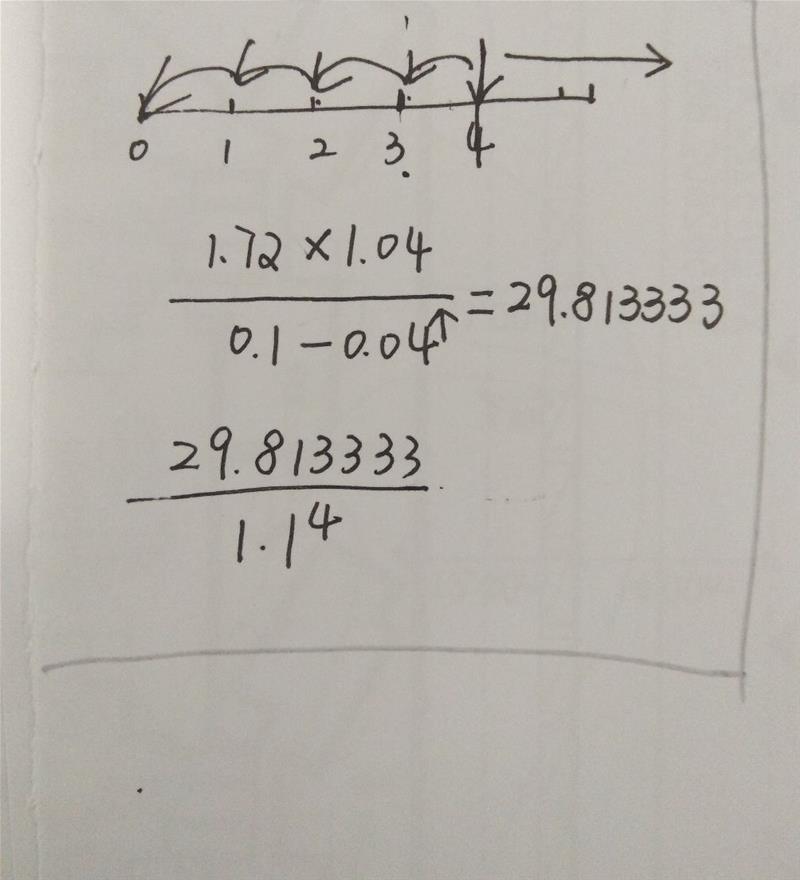 0 1 2 3 4
1.72 × 1.04
0.1 - 0.04
= 29.813333
29.813333
1.1⁴